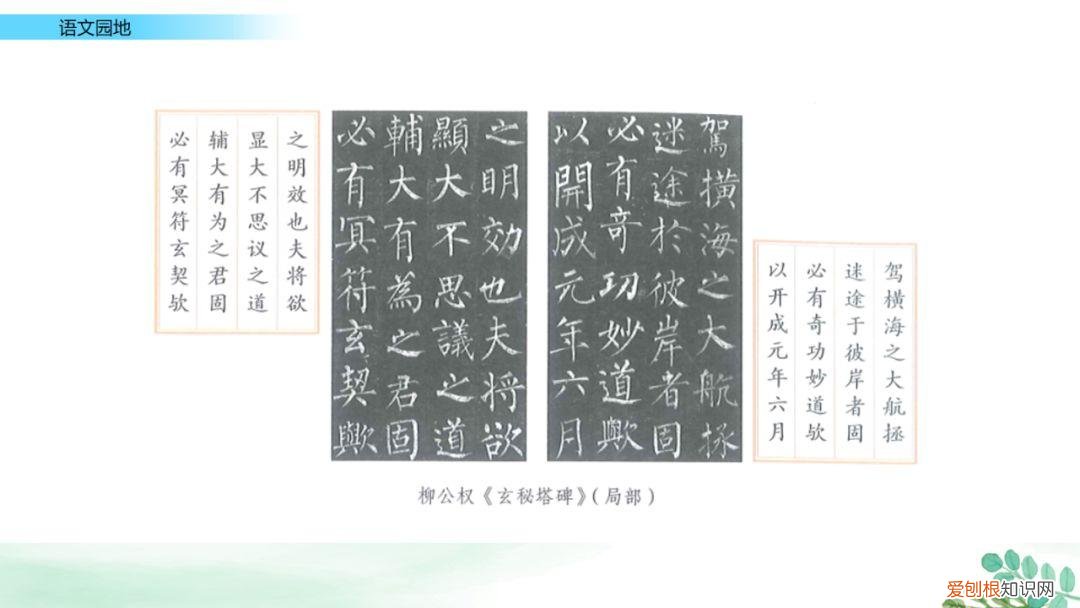 语文园地
之明效也夫将欲
显大不思议之道
辅大有为之君固
必有冥符玄契欤
之明効也夫將欲
顯大不思議之道
輔大有為之君固
必有冥符玄契歟
駕橫海之大航拯
迷途於彼岸者固
必有奇功妙道歟
以開成元年六月
驾横海之大航拯
迷途于彼岸者固
必有奇功妙道欤
以开成元年六月
柳公权《玄秘塔碑》（局部）
爱刨根知识网